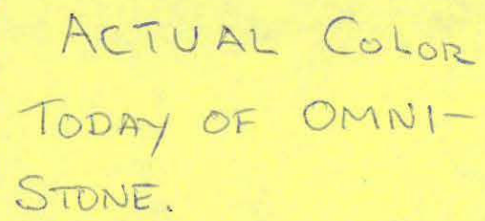 ACTUAL COLOR
TODAY OF OMNI-
STONE.